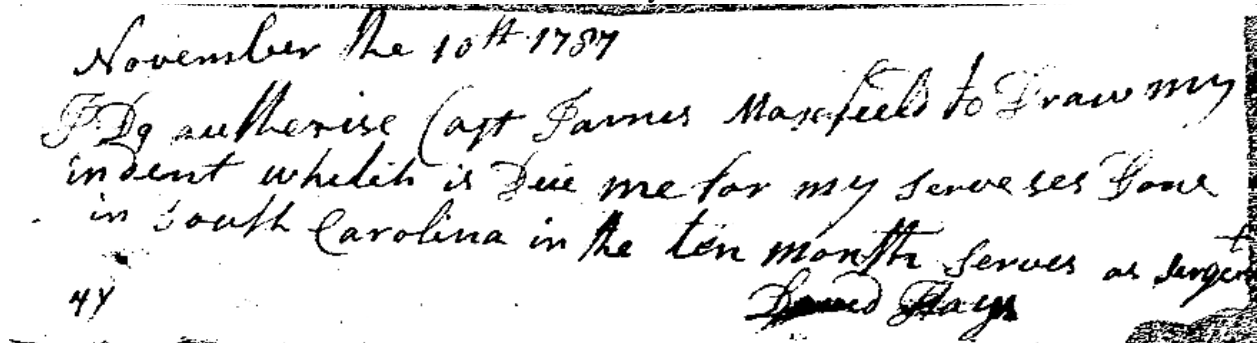 November the 10th 1787
I Do autherise Capt James Maxfield to Draw my
indent whitch is Due me for my serveses Done
in South Carolina in the ten month Serves as Sergent
David Hays
44